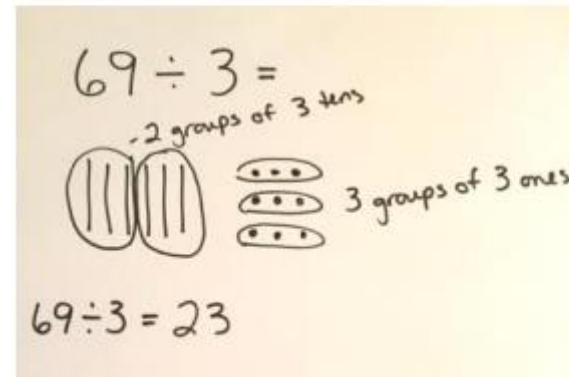 69 ÷ 3 =
-2 groups of 3 tens
3 groups of 3 ones
69÷3 = 23